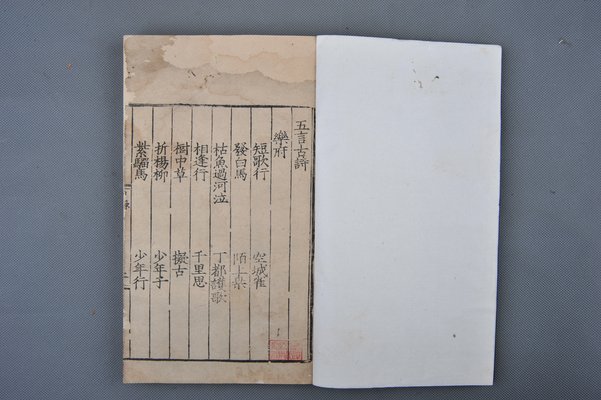 五言古詩
樂府
短歌行 空城雀
發白馬 陌上桑
枯魚過河泣 丁都護歌
相逢行 千里思
樹中草 擬古
折楊柳 少年子
紫騮馬 少年行